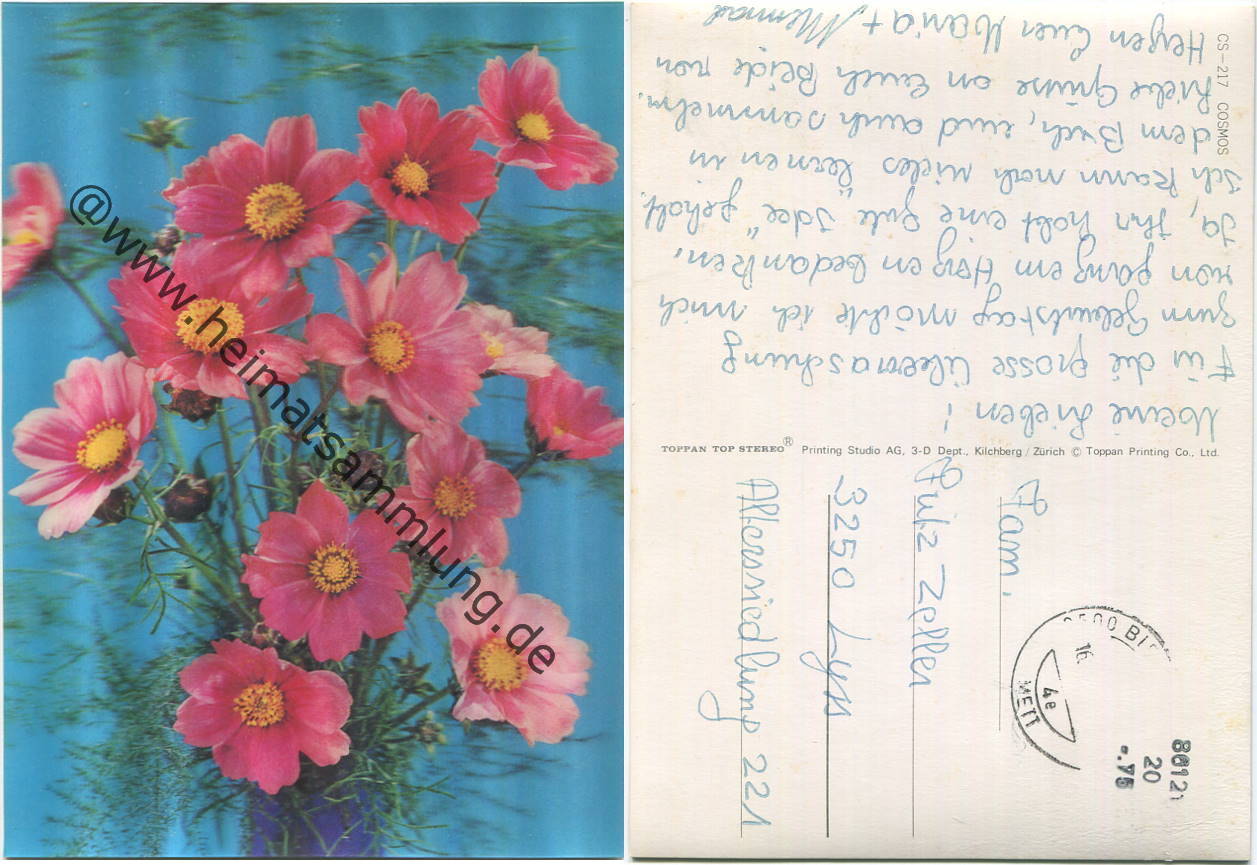 @www.heimatsammlung.de
CS-217 COSMOS
Meine Lieben!
Für die grosse Überraschung
zum Geburtstag möchte ich mich
von ganzem Herzen bedanken.
Ja, Ihr habt eine gute "Idee" gehabt.
Ich kann noch vieles lernen in
dem Buch, und auch sammeln.
Liebe Grüsse an Euch Beide von
Herzen Euer Maria + Meinrad
TOPPAN TOP STEREO® Printing Studio AG, 3-D Dept., Kilchberg / Zürich © Toppan Printing Co., Ltd.
Fam.
Zeller
3250 Lyss
Alterssiedlung 221
METT
16.
4e
86121
20
-.75